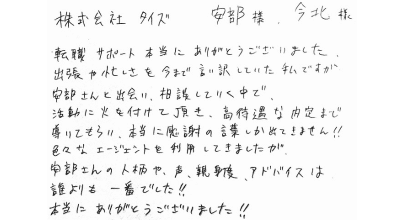 株式会社 タイズ 安部様、今北様
転職サポート本当にありがとうございました。
出張や忙しさを今まで言い訳していた私ですが
安部さんと出会い、相談していく中で、
活動に火を付けて頂き、高待遇な内定まで
導いてもらい、本当に感謝の言葉しか出てきません!!
色々なエージェントを利用してきましたが、
安部さんの人柄や、声、親身度、アドバイスは
誰よりも一番でした!!
本当にありがとうございました!!